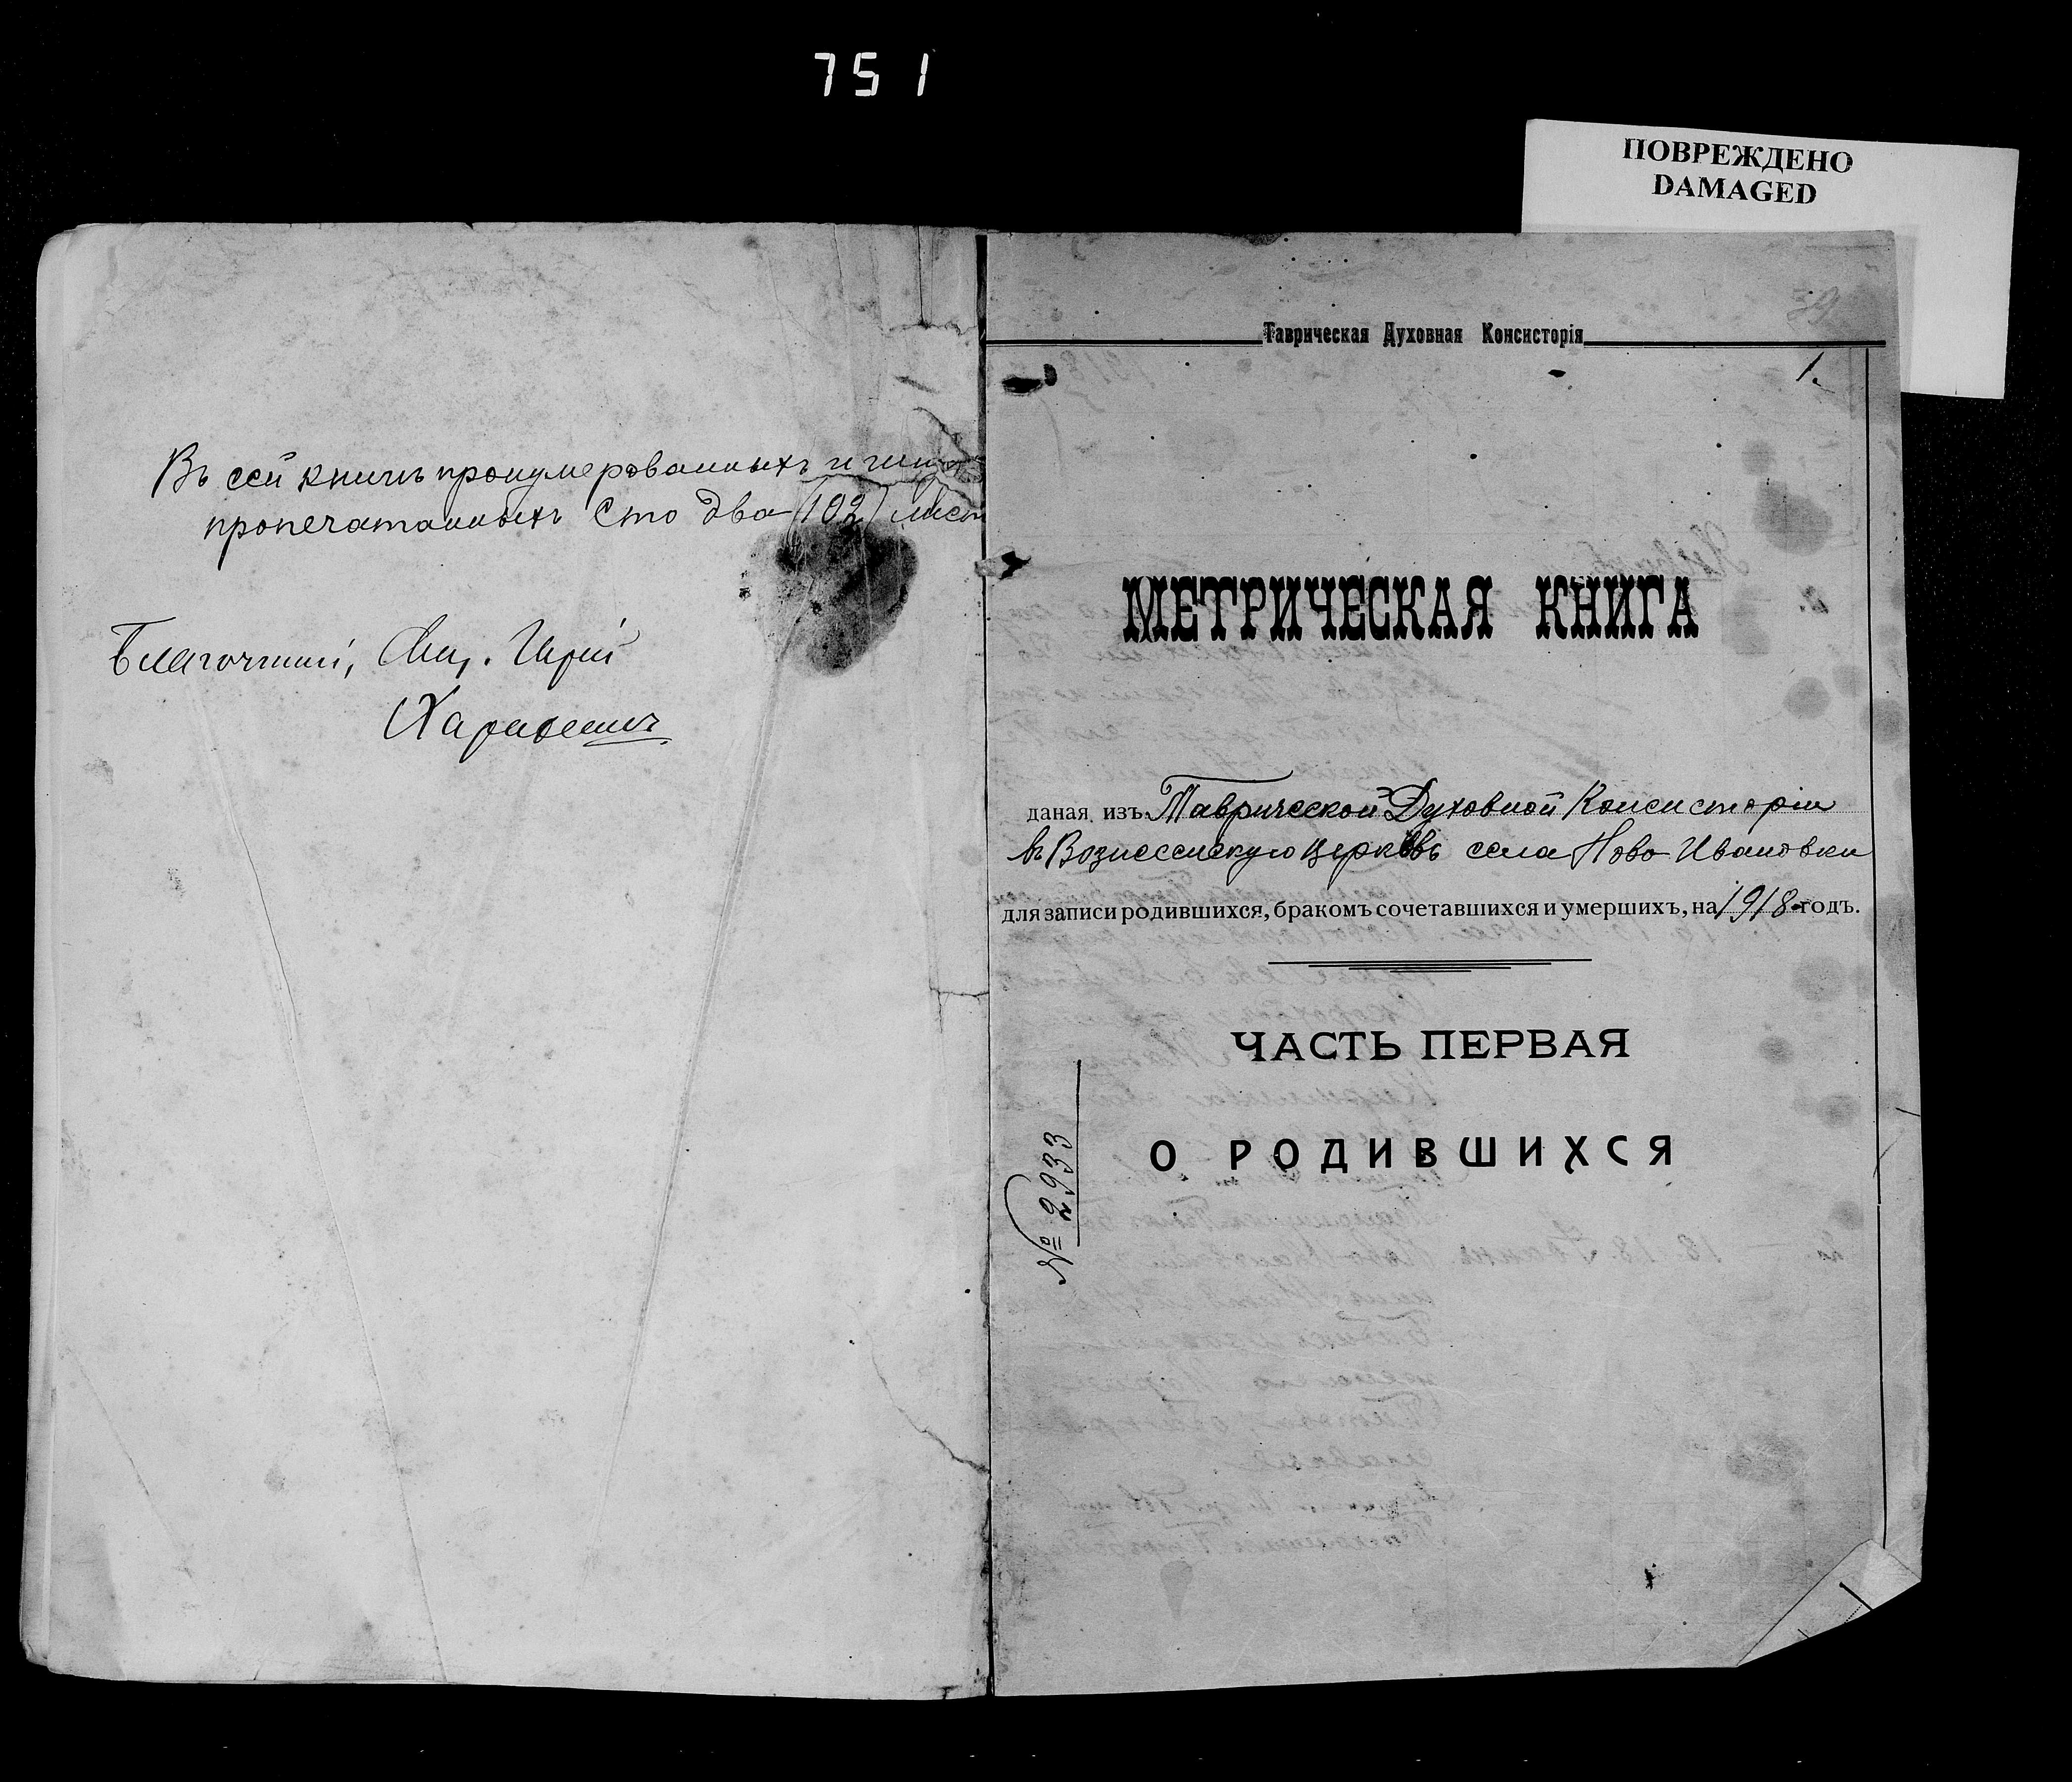 751
ПОВРЕЖДЕНО
DAMAGED
Въ сей книгѣ пронумерованныхъ и
пропечатанныхъ сто два (102) лист
Благочинный, Свящ.
39
Таврическая Духовная Консисторія
1.
МЕТРИЧЕСКАЯ КНИГА
даная изъ Таврической Духовной Консисторіи
въ Вознесенскую церковь села Ново Ивановки
для записи родившихся, бракомъ сочетавшихся и умершихъ, на 1918 годъ.
ЧАСТЬ ПЕРВАЯ
О РОДИВШИХСЯ
№ 2933